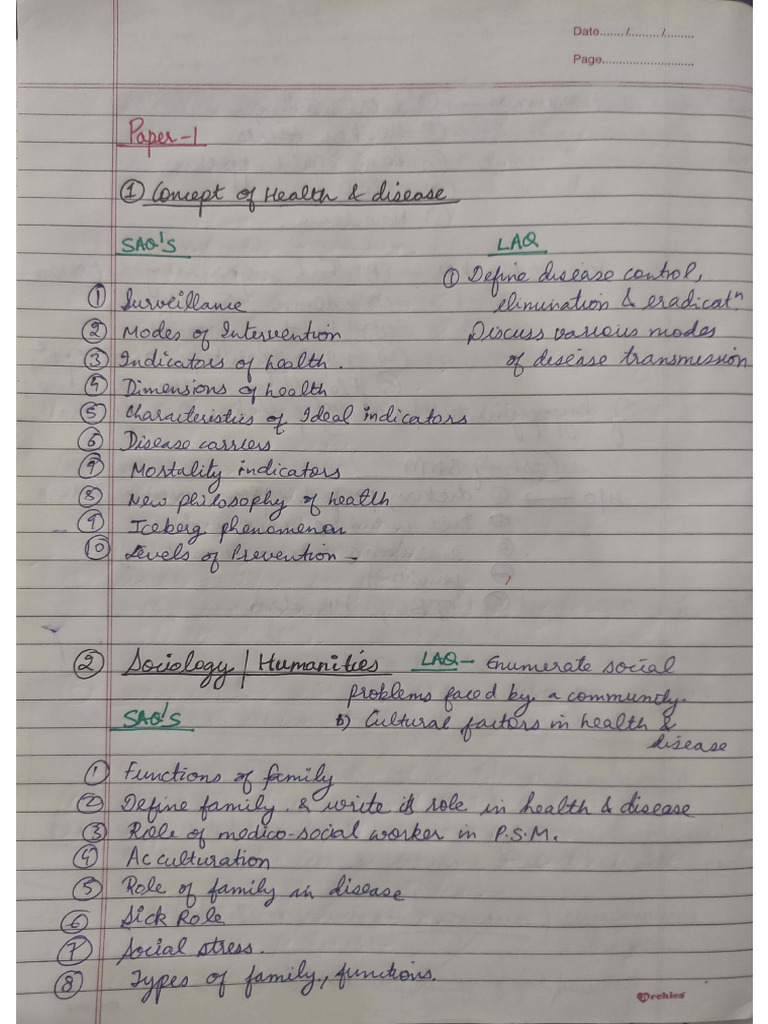 Date......./........./.........
Page...........................
Paper-1
① Concept of Health & disease
SAQ'S
① Surveillance
② Modes of Intervention
③ Indicators of health.
④ Dimensions of health
⑤ Characteristics of Ideal indicators
⑥ Disease carriers
⑦ Mortality indicators
⑧ New philosophy of health
⑨ Iceberg phenomenon
⑩ Levels of Prevention -
LAQ
① Define disease control,
elimination & eradicatⁿ.
Discuss various modes
of disease transmission
② Sociology / Humanities LAQ- Enumerate social
problems faced by a community.
b) Cultural factors in health &
disease
SAQ'S
① Functions of family
② Define family. & write its role in health & disease
③ Role of medico-social worker in P.S.M.
④ Acculturation
⑤ Role of family in disease
⑥ Sick Role
⑦ Social stress.
⑧ Types of family., functions.
Archies